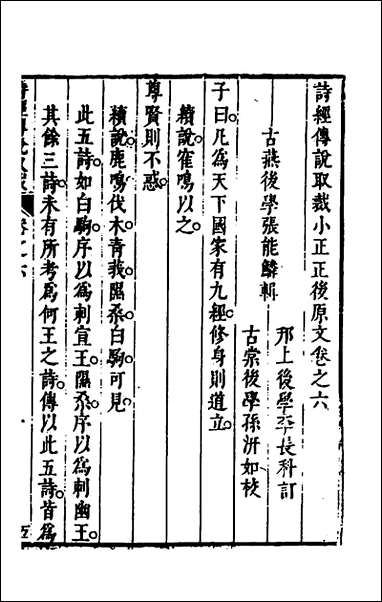 詩經傳說取裁小正正後原文卷之六
古燕後學張能鱗輯
邗上後學李長科訂
古棠後學孫汧如校
子曰凡為天下國家有九經修身則道立
續說寉鳴以之
尊賢則不惑
續說鹿鳴伐木青莪隰桑白駒可見
此五詩如白駒序以為刺宣王隰桑序以為刺幽王
其餘三詩未有所考為何王之詩傳以此五詩皆為
卷之六